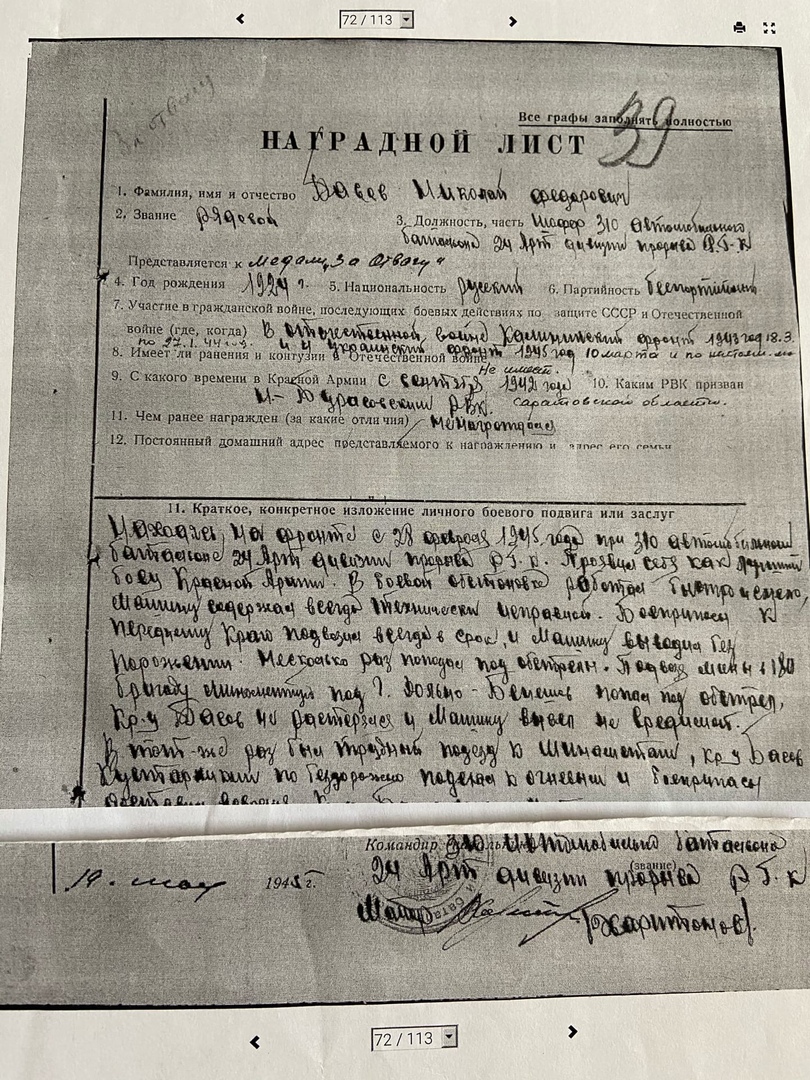 72 / 113
За отвагу
39
Все графы заполнять полностью
НАГРАДНОЙ ЛИСТ
1. Фамилия, имя и отчество Басов Николай Федорович
2. Звание рядовой
3. Должность, часть Шофер 310 автомобильного
батальона 24 Арт дивизии прорыва Р.Г.К
Представляется к медали „За Отвагу“
4. Год рождения 1924 г. 5. Национальность русский 6. Партийность беспартийный
7. Участие в гражданской войне, последующих боевых действиях по защите СССР и Отечественной
войне (где, когда) В отечественной войне Калининский фронт 1943 год 18.3.
по 27.1.44 и 4 украинский фронт 1945 год 10 марта и по
8. Имеет ли ранения и контузии в Отечественной войне
Не имеет.
9. С какого времени в Красной Армии С сентября 1942 года 10. Каким РВК призван
РВК. Саратовской области.
11. Чем ранее награжден (за какие отличия)
12. Постоянный домашний адрес представляемого к награждению и адрес его семьи
11. Краткое, конкретное изложение личного боевого подвига или заслуг
Находясь на фронте с 28 февраля 1945 года при 310 автомобильном
батальоне 24 Арт дивизии прорыва Р.Г.К. Проявил себя как лучший
боец Красной Армии. В боевой обстановке работал быстро и смело,
Машину содержал всегда технически исправной. Боеприпасы к
переднему краю подвозил всегда в срок, и Машину выводил без
Несколько раз попадал под обстрелы. Подвозя мины в
бригаду минометную под г. попал под обстрел,
Кр-ц Басов не растерялся и Машину вывел не
В тот-же раз был трудный подъезд к, кр-ц Басов
Кустарником по бездорожью подъехал к и боеприпасы
Командир 310 Автомобильного батальона
(звание)
24 Арт дивизии прорыва Р.Г.К
19. мая 1945 г.
Майор Харитонов
72 / 113